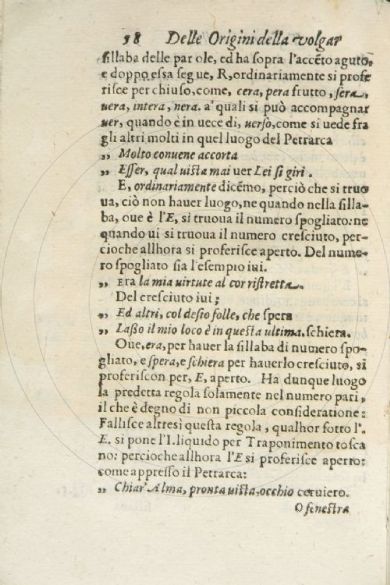 58 Delle Origini della volgar
sillaba delle par ole, ed ha sopra l'accẽto aguto,
e doppo essa segue, R, ordinariamente si profe
risce per chiuso, come, cera, pera frutto, sera,
uera, intera, nera. a' quali si può accompagnar
uer, quando è in uece di, uerso, come si uede fra
gli altri molti in quel luogo del Petrarca
„ Molto conuene accorta
„ Esser, qual uista mai uer Lei si giri.
E, ordinariamente dicẽmo, perciò che si truo
ua, ciò non hauer luogo, ne quando nella silla-
ba, oue è l'E, si truoua il numero spogliato: ne
quando ui si truoua il numero cresciuto, per-
cioche allhora si proferisce aperto. Del nume-
ro spogliato sia l'esempio iui.
„ Era la mia uirtute al cor ristretta.
Del cresciuto iui;
„ Ed altri, col desio folle, che spera
„ Lasso il mio loco è in questa ultima schiera.
Oue, era, per hauer la sillaba di numero spo-
gliato, e spera, e schiera per hauerlo cresciuto, si
proferiscon per, E, aperto. Ha dunque luogo
la predetta regola solamente nel numero pari,
il che è degno di non piccola consideratione:
Fallisce altresi questa regola, qualhor sotto l'
E. si pone l'I. liquido per Traponimento tosca
no: percioche allhora l'E si proferisce aperto:
come appresso il Petrarca:
„ Chiar' Alma, pronta uista, occhio ceruiero.
O finestra